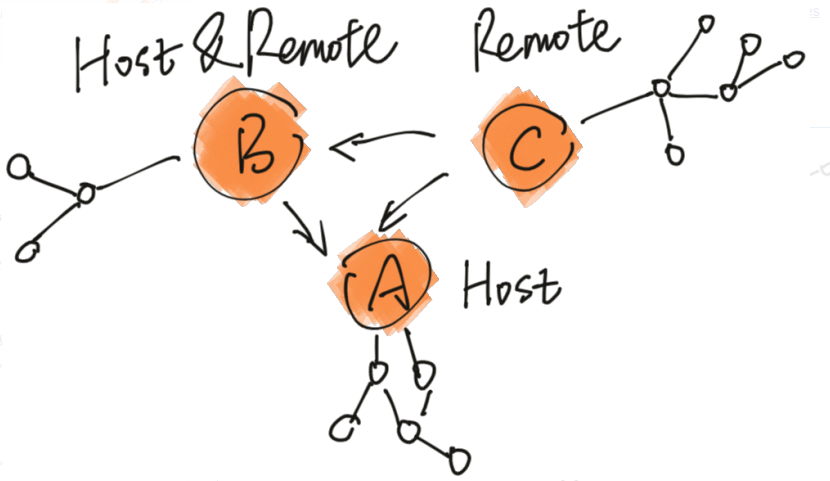 Host & Remote
Remote
B
C
A
Host